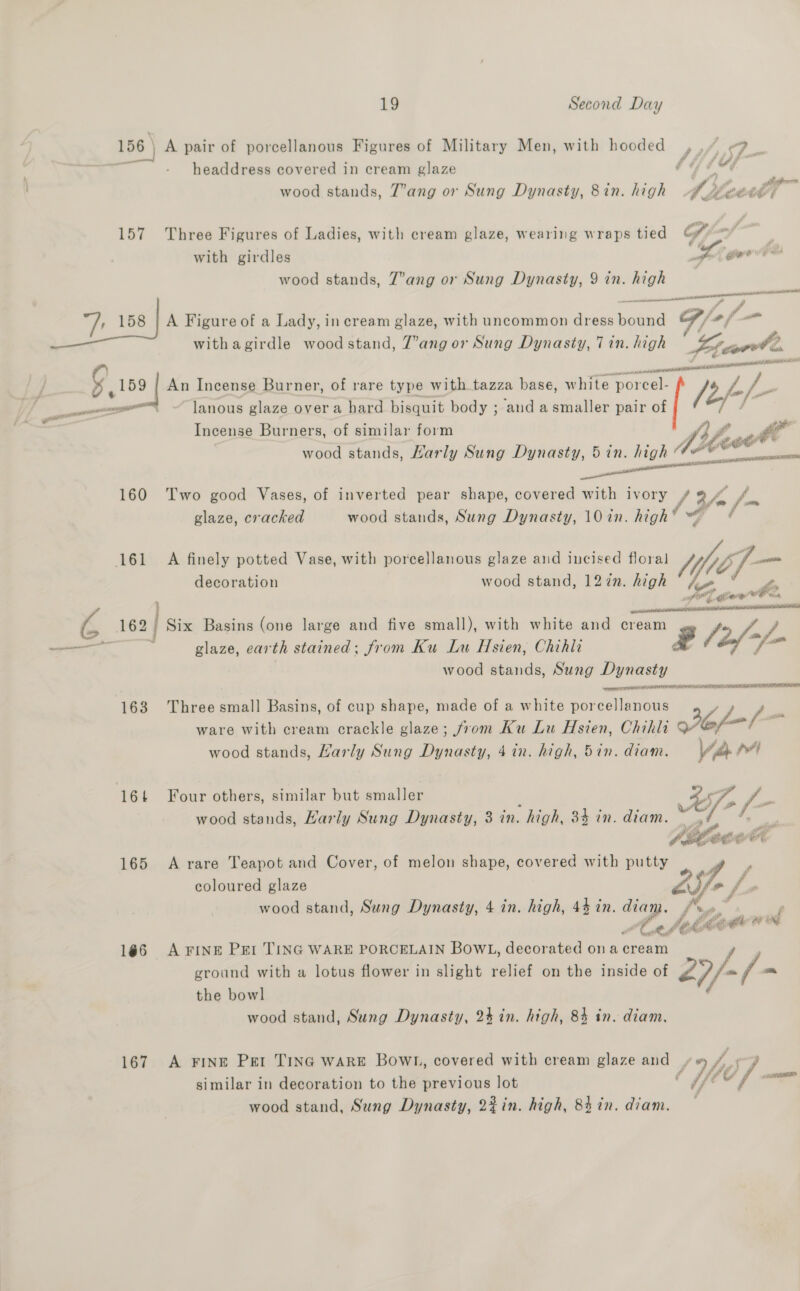 19 Second Day
156 A pair of porcellanous Figures of Military Men, with hooded
headdress covered in cream glaze
wood stands, T'ang or Sung Dynasty, 8 in. high
157 Three Figures of Ladies, with cream glaze, wearing wraps tied
with girdles
wood stands, T'ang or Sung Dynasty, 9 in. high
7, 158 A Figure of a Lady, in cream glaze, with uncommon dress bound
with a girdle wood stand, T'ang or Sung Dynasty, 7 in. high
159 An Incense Burner, of rare type with tazza base, white porcel-
lanous glaze over a hard bisquit body ; and a smaller pair of
Incense Burners, of similar form
wood stands, Early Sung Dynasty, 5 in. high
160 Two good Vases, of inverted pear shape, covered with ivory
glaze, cracked wood stands, Sung Dynasty, 10 in. high
161 A finely potted Vase, with porcellanous glaze and incised floral
decoration wood stand, 12 in. high
6 162 Six Basins (one large and five small), with white and cream
glaze, earth stained ; from Ku Lu Hsien, Chihli
wood stands, Sung Dynasty
163 Three small Basins, of cup shape, made of a white porcellanous
ware with cream crackle glaze ; from Ku Lu Hsien, Chihli
wood stands, Early Sung Dynasty, 4 in. high, 5 in. diam.
164 Four others, similar but smaller
wood stands, Early Sung Dynasty, 3 in. high, 3½ in. diam.
165 A rare Teapot and Cover, of melon shape, covered with putty
coloured glaze
wood stand, Sung Dynasty, 4 in. high, 4½ in. diam.
166 A FINE PEI TING WARE PORCELAIN BOWL, decorated on a cream
ground with a lotus flower in slight relief on the inside of
the bowl
wood stand, Sung Dynasty, 2½ in. high, 8½ in. diam.
167 A FINE PEI TING WARE BOWL, covered with cream glaze and
similar in decoration to the previous lot
wood stand, Sung Dynasty, 2¾ in. high, 8½ in. diam.